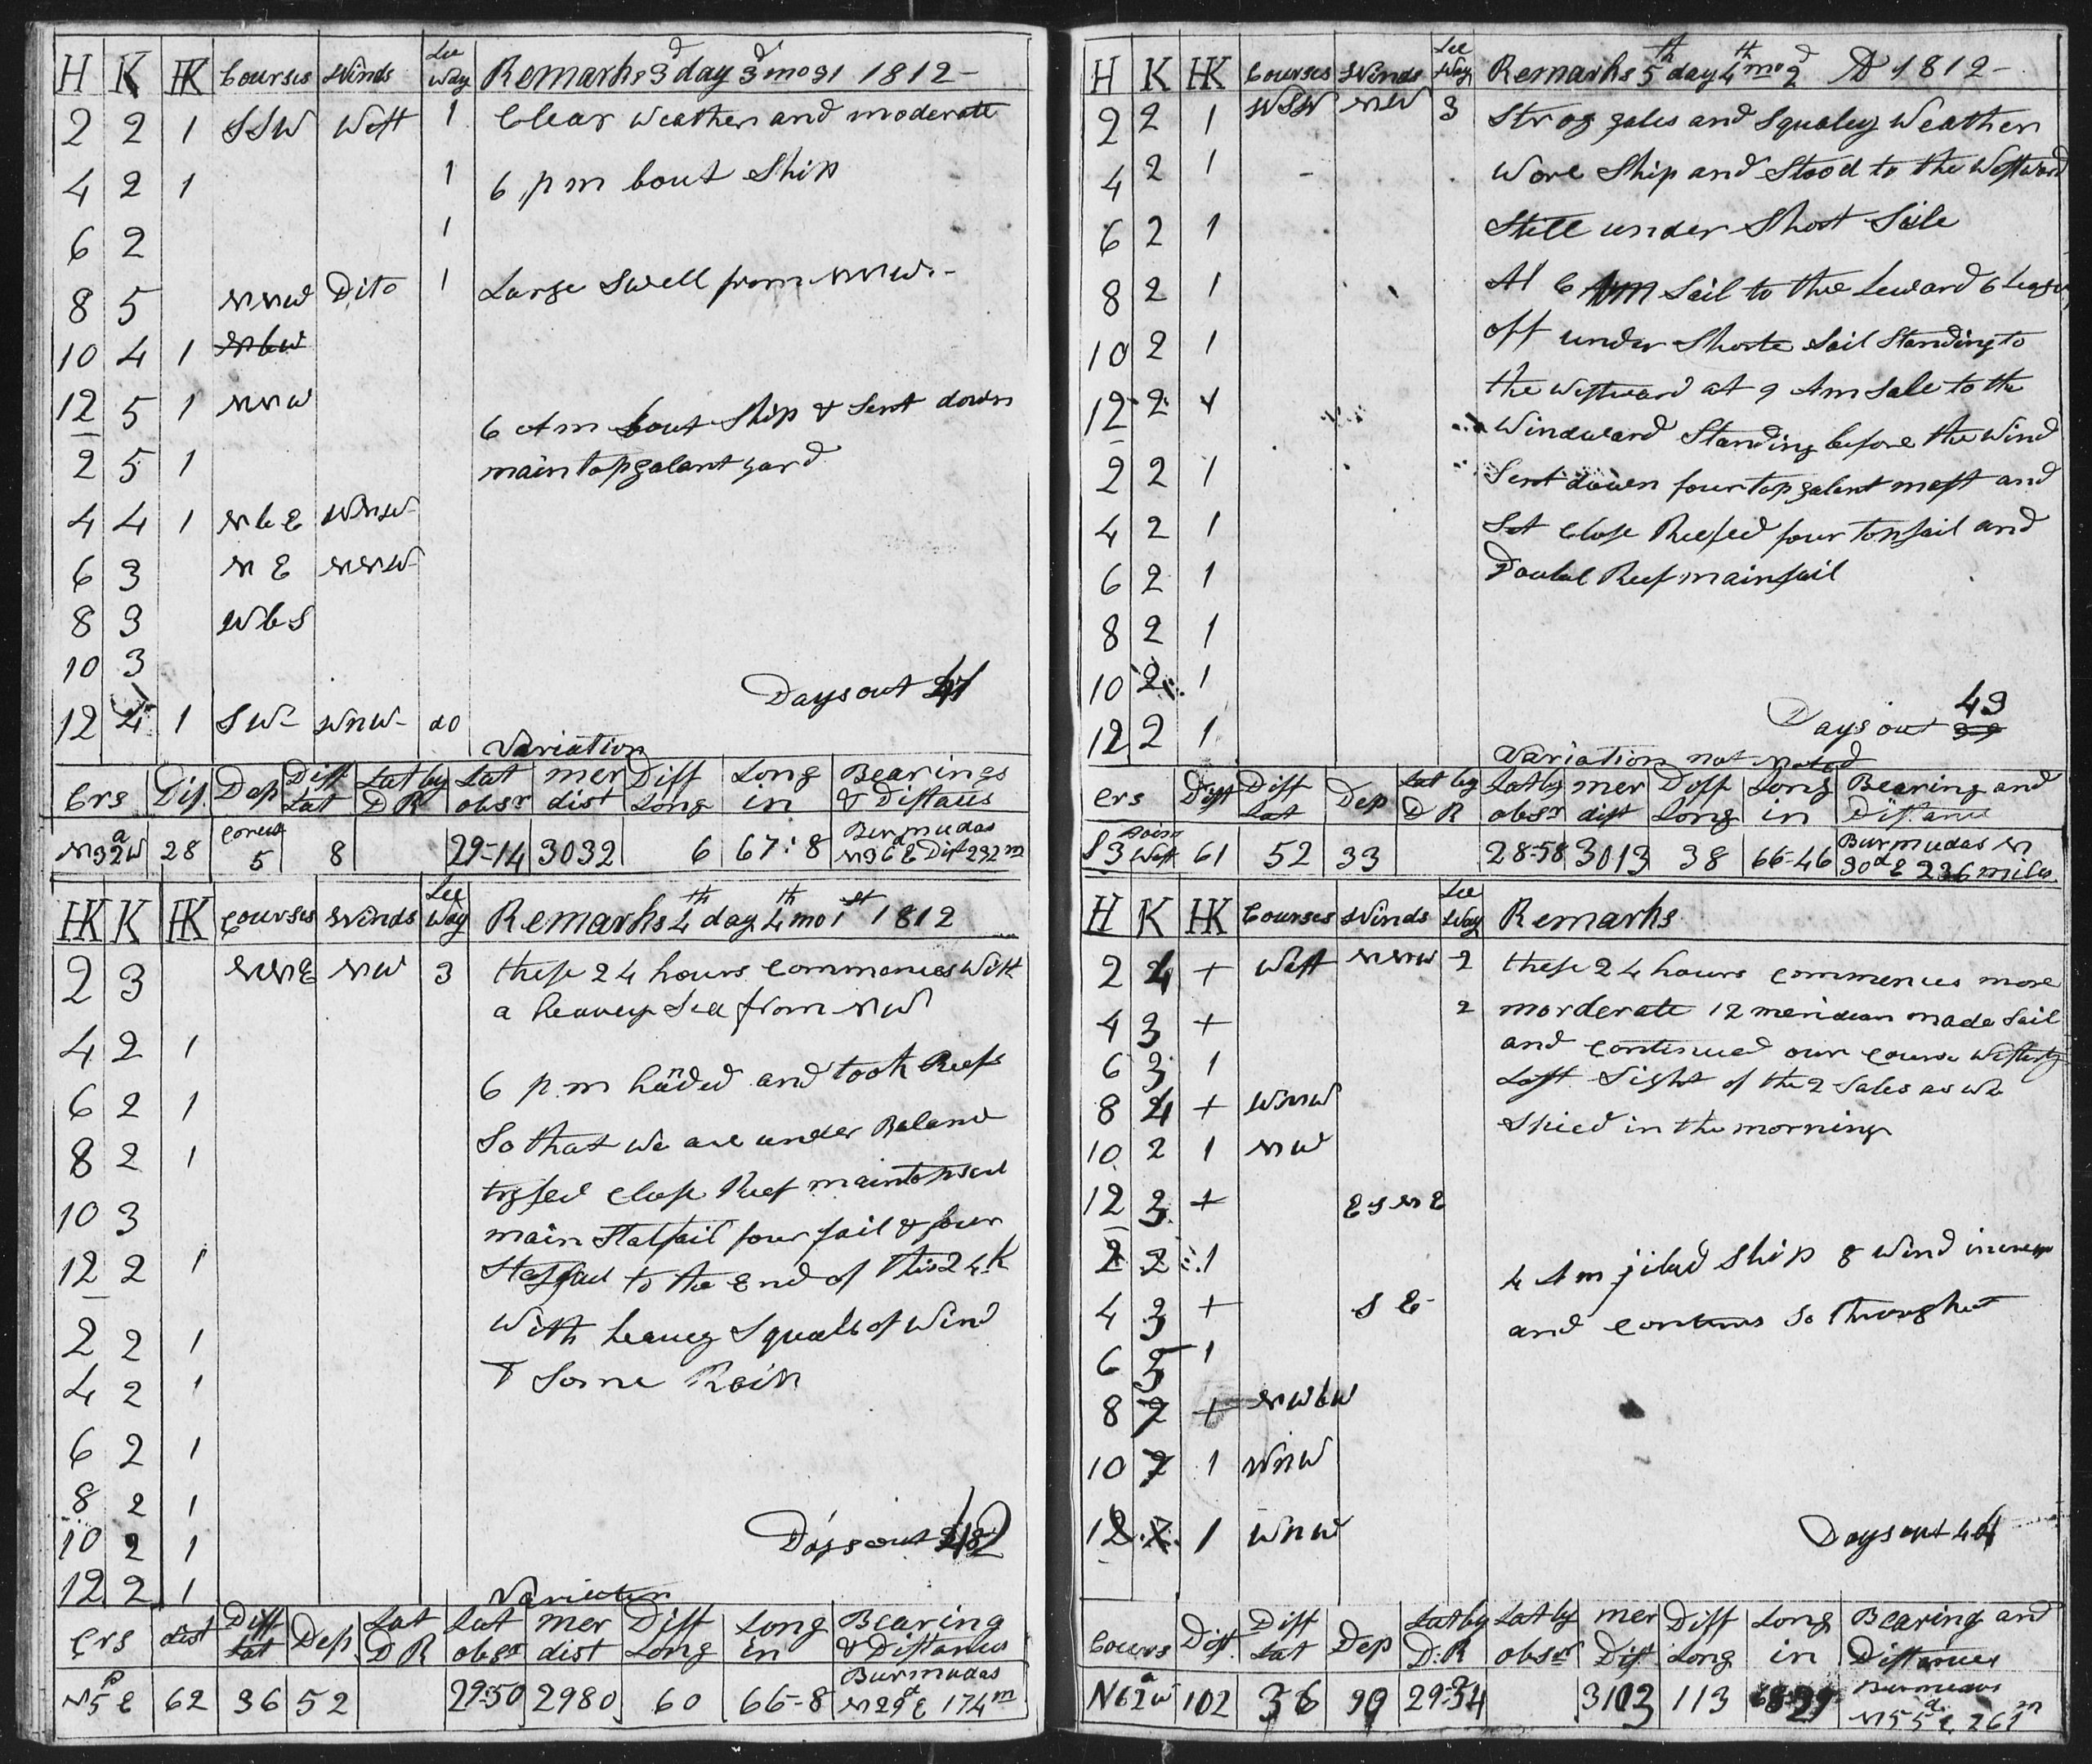 H K HK Courses Winds Lee Way Remarks 3d day 3d mo 31 1812
2 2 1 SSW West 1 Clear Weather and moderate
4 2 1 1 6 pm bout Ship
6 2 1
8 5 NNW Dito 1 Large Swell from NNW
10 4 1 NbW
12 5 1 NNW
6 Am bout Ship & Sent down
2 5 1 main topgalant yard
4 4 1 NbE WNW
6 3 NE NNW
8 3 WbS
10 3
Days out 41
12 4 1 SW WNW do
Variation
Crs Dis Dep Diff Lat Lat by DR Lat obsr mer dist Diff Long Long in Bearings & Distans
N32dW 28 5 8 29-14 3032 6 67:8 Burmudas N36dE Dist 232m
HK K HK Courses Winds Lee Way Remarks 4th day 4th mo 1st 1812
2 3 NNE NW 3 these 24 hours Commences With
a heavey Sea from NW
4 2 1
6 p.m handed and took Reefs
6 2 1
So that we are under Balanc
8 2 1
trysel Close Reef maintopsail
10 3
main Stalsail four sail & four
12 2 1
Staysail to the End of this 24 h
2 2 1 With heavey Squals of Wind
4 2 1 & Some Rain
6 2 1
8 2 1
10 2 1 Days out 42
12 2 1
Variation
Crs dist Diff Lat Dep Lat DR Lat obsr mer dist Diff Long Long in Bearing & Distances
N5pE 62 36 52 29-50 2980 60 66-8 Burmudas N29dE 174m
H K HK Courses Winds Lee Way Remarks 5th day 4th mo 2d AD 1812
2 2 1 WSW NW 3 Strog gales and Squaley Weather
4 2 1 Wore Ship and Stood to the Westward
6 2 1 Still under Short Sale
8 2 1 At 6 AM Sail to the Leward 6 Leags
10 2 1 off under Shorte Sail Standing to
12 2 1 the Westward at 9 Am Sale to the
Windward Standing before the Wind
2 2 1 Sent down fourtopgalant mast and
4 2 1 Set Close Reefed four topsail and
6 2 1 Doubel Reef mainsail
8 2 1
10 2 1
Days out 39 43
12 2 1
Variation not Noted
Crs Dist Diff Lat Dep Lat by DR Lat by obsr mer dist Diff Long Long in Bearing and Distance
S3 poin West 61 52 33 28-58 3013 38 66-46 Burmudas N 30d E 236 miles
H K HK Courses Winds Lee Way Remarks
2 4 + West NNW 2 these 24 hours commences more
4 3 + 2 morderate 12 meridean made Sail
6 3 1 and continued our course Westerly
8 4 + WNW Lost Sight of the 2 Sales as we
10 2 1 NW Spied in the morning
12 3 + ESNE
2 2 1 4 Am jibed Ship 8 Wind increas
4 3 + SE and continus So throughout
6 5 1
8 7 + NWbW
10 7 1 WNW
12 7 1 WNW Days out 44
Cours Dist Diff Lat Dep Lat by D.R Lat by obsr mer Dis Diff Long Long in Bearing and Distances
N62dW 102 36 99 29-34 3103 113 Burmudas N55dE 261m